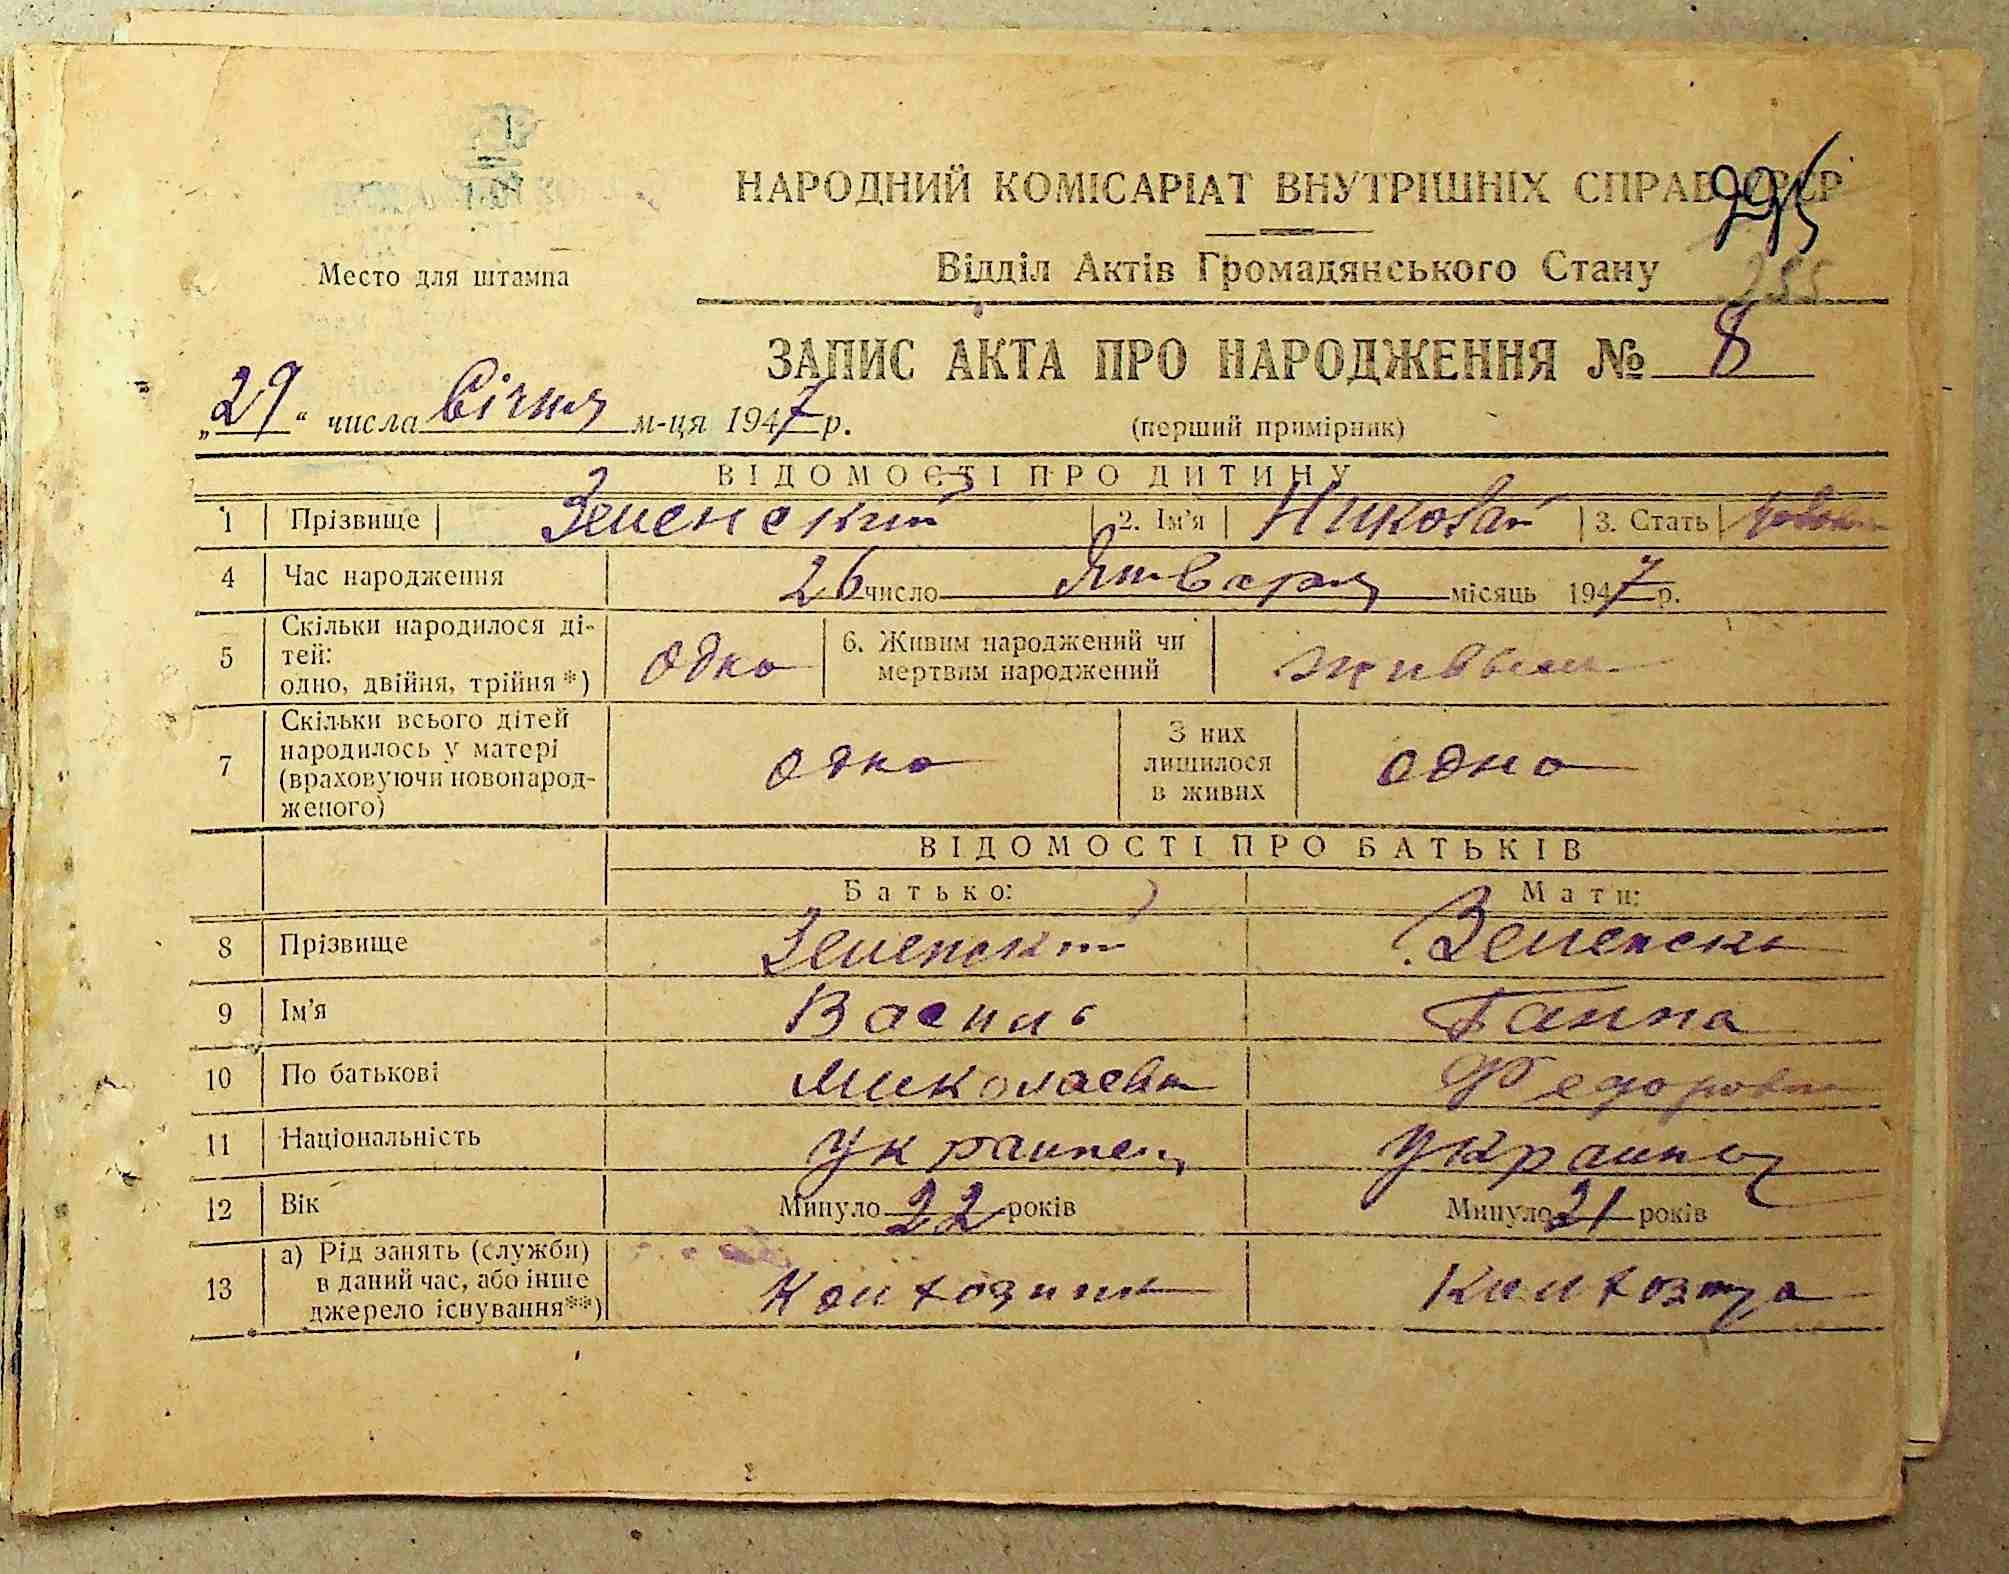 НАРОДНИЙ КОМІСАРІАТ ВНУТРІШНІХ СПРАВ УРСР
295
Відділ Актів Громадянського Стану
255
Место для штампа
ЗАПИС АКТА ПРО НАРОДЖЕННЯ № 8
„29“ числа Січня м-ця 1947 р.
(перший примірник)
ВІДОМОСТІ ПРО ДИТИНУ
1 Прізвище Зеленский 2. Ім'я Николай 3. Стать
4 Час народження 26 число Января місяць 1947 р.
5 Скільки народилося ді-
тей:
одно, двійня, трійня *) одно
6. Живим народжений чи
мертвим народжений живым
7 Скільки всього дітей
народилось у матері
(враховуючи новонарод-
женого) одно
З них
лишилося
в живих одно
ВІДОМОСТІ ПРО БАТЬКІВ
Батько: Мати:
8 Прізвище Зеленский Зеленска
9 Ім'я Василь Ганна
10 По батькові Миколаевич Федоровна
11 Національність украинец украинка
12 Вік Минуло 22 років Минуло 21 років
13 а) Рід занять (служби)
в даний час, або інше
джерело існування**) Колхозник